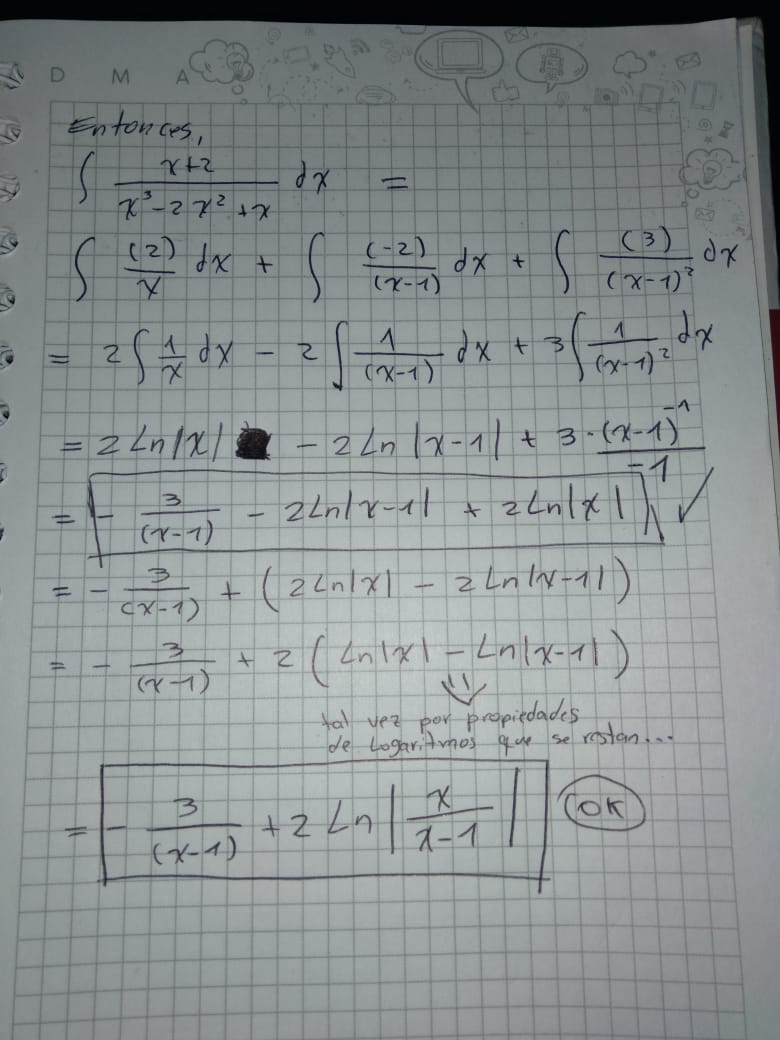 D M A
Entonces,
∫ x+2 / x³-2x²+x dx =
∫ (2)/x dx + ∫ (-2)/(x-1) dx + ∫ (3)/(x-1)² dx
= 2∫ 1/x dx - 2∫ 1/(x-1) dx + 3∫ 1/(x-1)² dx
= 2Ln|x| - 2Ln|x-1| + 3·(x-1)⁻¹/-1
= - 3/(x-1) - 2Ln|x-1| + 2Ln|x| ✓
= - 3/(x-1) + (2Ln|x| - 2Ln|x-1|)
= - 3/(x-1) + 2(Ln|x| - Ln|x-1|)
tal vez por propiedades
de Logaritmos que se restan...
= - 3/(x-1) + 2Ln|x/x-1| OK